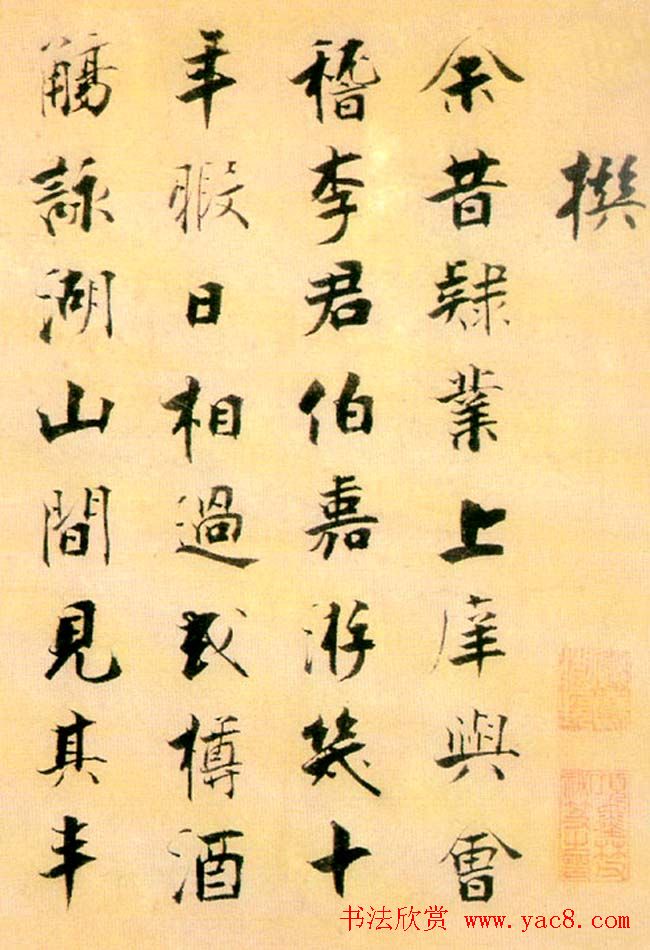 撰
余昔隸業上庠與會
稽李君伯嘉游幾十
年暇日相過或樽酒
觴詠湖山間見其丰
书法欣赏 www.yac8.com